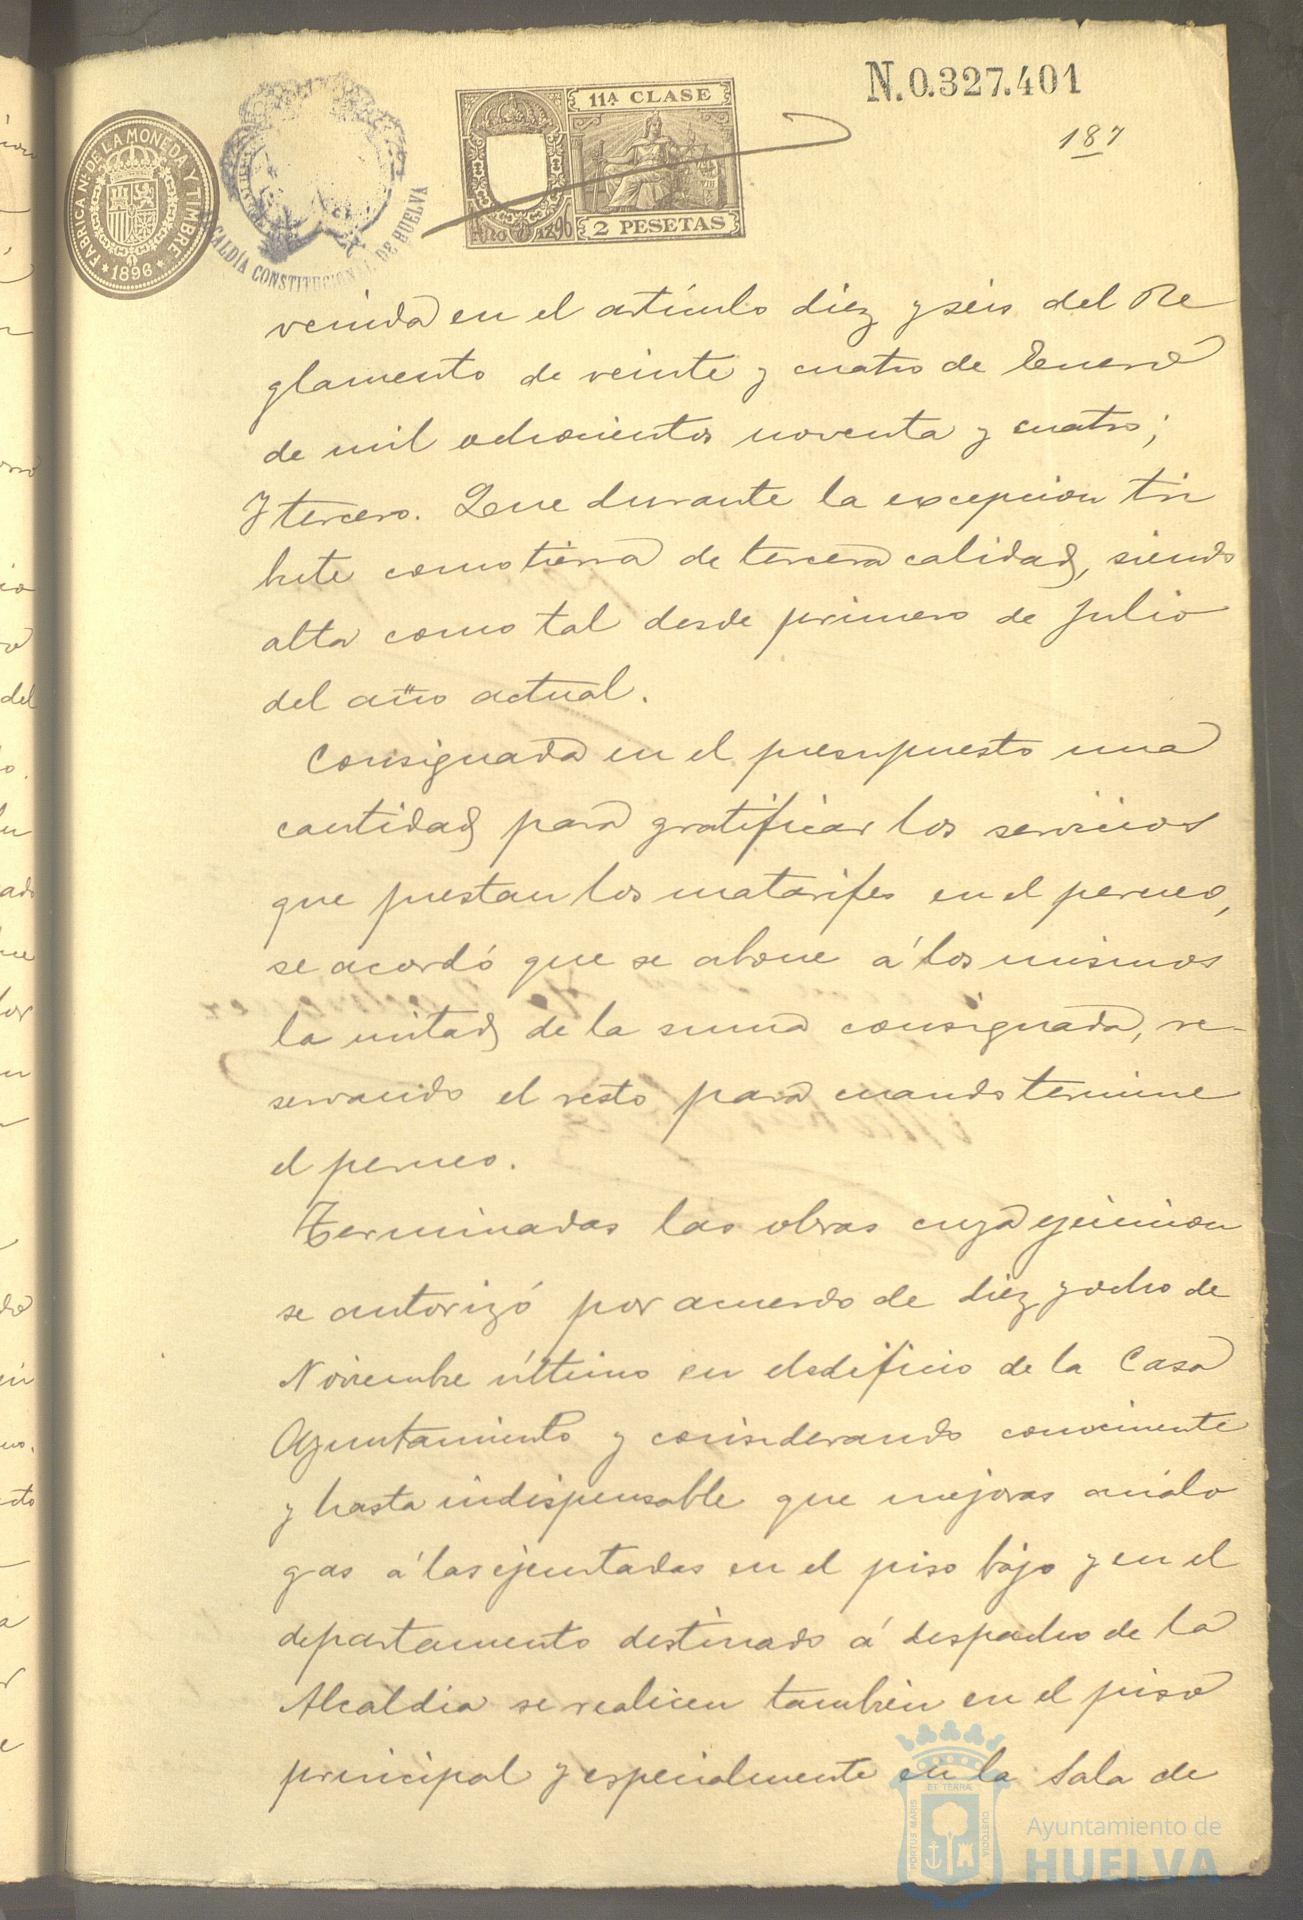 N.0.327.401
187
11A CLASE
2 PESETAS
Año 1896
FABRICA Nl. DE LA MONEDA Y TIMBRE
1896
ALCALDÍA CONSTITUCIONAL DE HUELVA
venida en el artículo diez y seis del Re
glamento de veinte y cuatro de Enero
de mil ochocientos noventa y cuatro;
Y tercero. Que durante la excepcion tri
bute como tierra de tercera calidad, siendo
alta como tal desde primero de Julio
del año actual.
Consignada en el presupuesto una
cantidad para gratificar los servicios
que prestan los matarifes en el perneo,
se acordó que se abone á los mismos
la mitad de la suma consignada, re-
servando el resto para cuando termine
el perneo.
Terminadas las obras cuya ejecucion
se autorizó por acuerdo de diez y ocho de
Noviembre último en el edificio de la Casa
Ayuntamiento y considerando conveniente
y hasta indispensable que mejoras análo
gas á las ejecutadas en el piso bajo y en el
departamento destinado á despacho de la
Alcaldia se realicen tambien en el piso
principal y especialmente en la Sala de
PORTUS MARIS ET TERRAE CUSTODIA
Ayuntamiento de
HUELVA